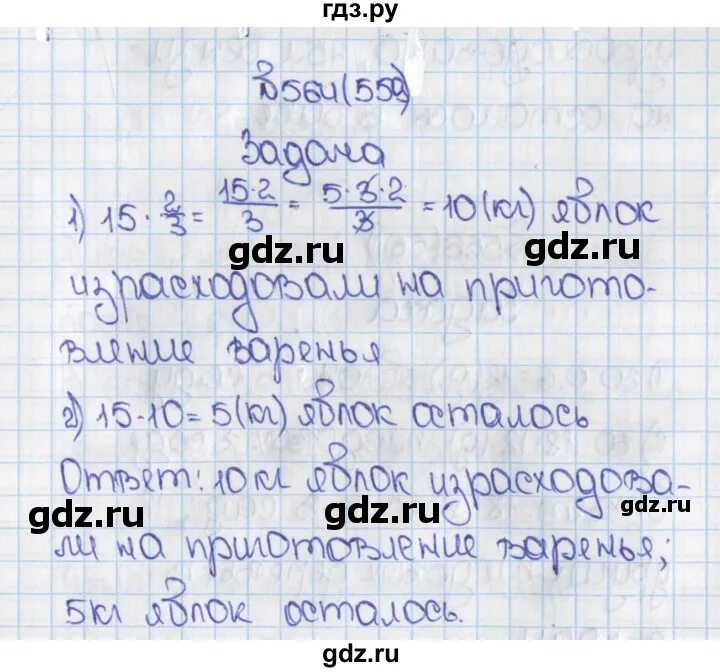 гдз.ру
№564(559)
Задача
1) 15 · 2/3 = 15·2/3 = 5·3·2/3 = 10(кг) яблок
gdz.ru gdz.ru
израсходовали на пригото-
вление варенья
2) 15-10=5(кг) яблок осталось
Ответ: 10 кг яблок израсходова-
gdz.ru gdz.ru gdz.ru
ли на приготовление варенья;
5кг яблок осталось.
gdz.ru